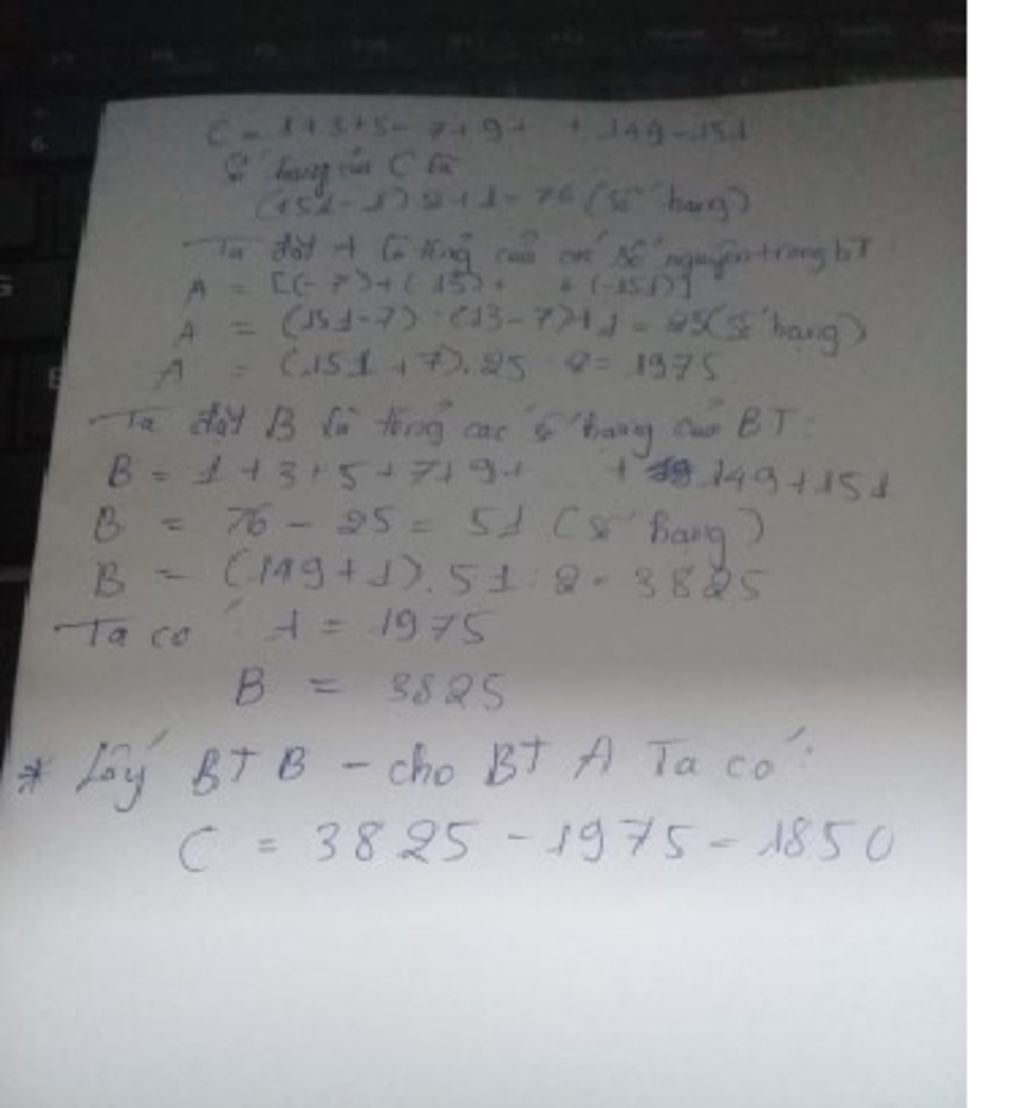 C = 1+3+5-7+9+ + 149-151
Số hạng của C là
(151-1):2+1=76 (số hạng)
Ta đặt A là tổng của các số nguyên trong bT
A = [(-7)+(-15)+ +(-151)]
A = (151-7):(13-7)+1=25(số hạng)
A = (151+7).25:2=1975
Ta đặt B là tổng các số hạng của BT:
B = 1+3+5+7+9+ + 149+151
B = 76-25=51 (số hạng)
B = (149+1).51:2=3825
Ta có A = 1975
B = 3825
* Lấy BT B - cho BT A Ta có:
C = 3825-1975=1850